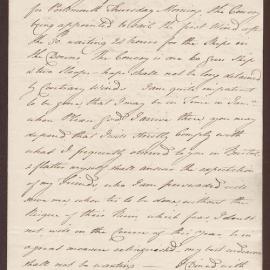 for Portsmouth Thursday Morning the Convoy
being appointed to wait the first Wind after
the 30. waiting 24 hours for the Ships in
the Downs. The Convoy is one 40 Gun Ship
& two Sloops - hope shall not be long detained
by Contrary Winds. I am quite impatient
to be gone, that I may be in Time in
when Please God I arrive there you may
depend that I will strictly Comply with
what I frequently observed to you in Bristol
& flatter myself shall answer the expectation
of my Friends, who I am persuaded will
serve me, when tis to be done, without the
of their Firm which fear I doubt
not will in the Course of this Year, be in
a great measure extinguished, my best endeavors
shall not be wanting